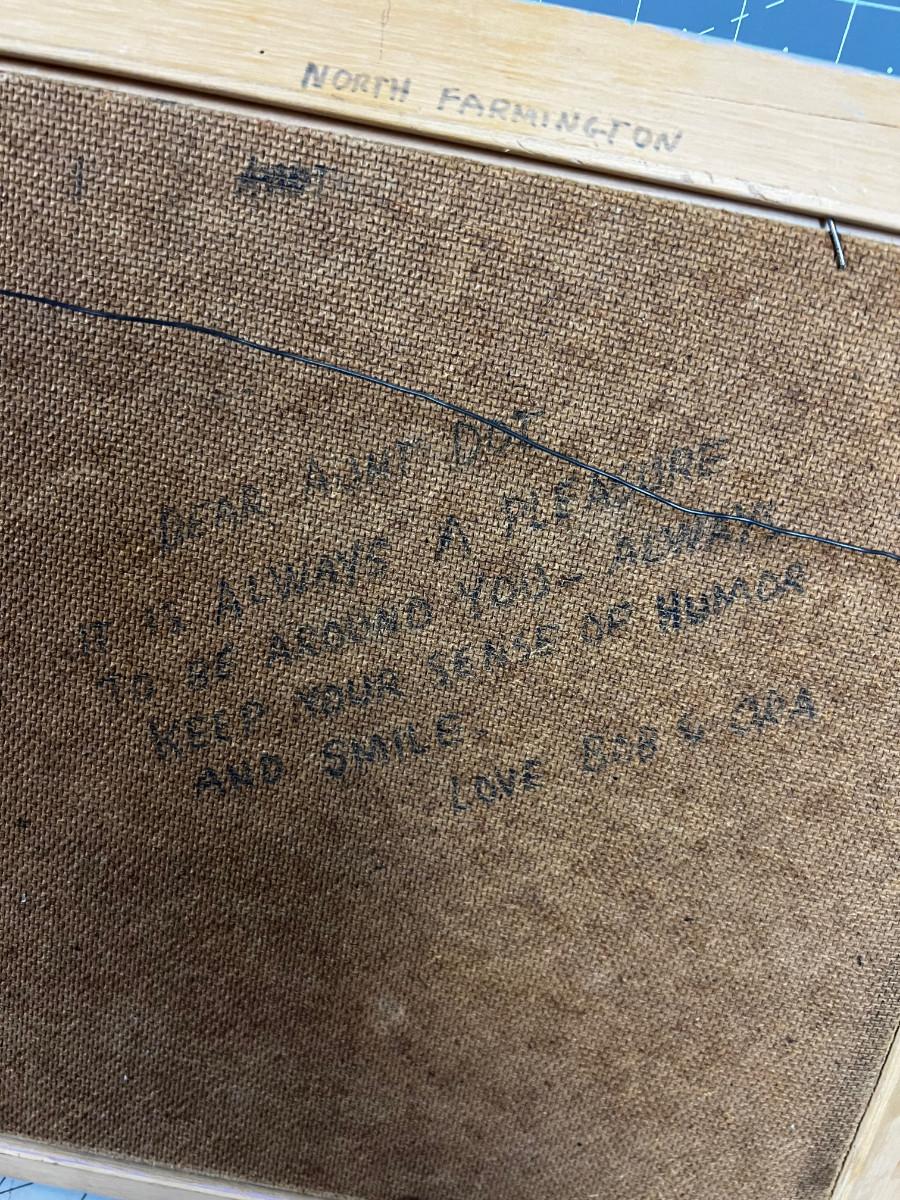 NORTH FARMINGTON
DEAR AUNT DOT
IT IS ALWAYS A PLEASURE
TO BE AROUND YOU - ALWAYS
KEEP YOUR SENSE OF HUMOR
AND SMILE.
LOVE BOB &